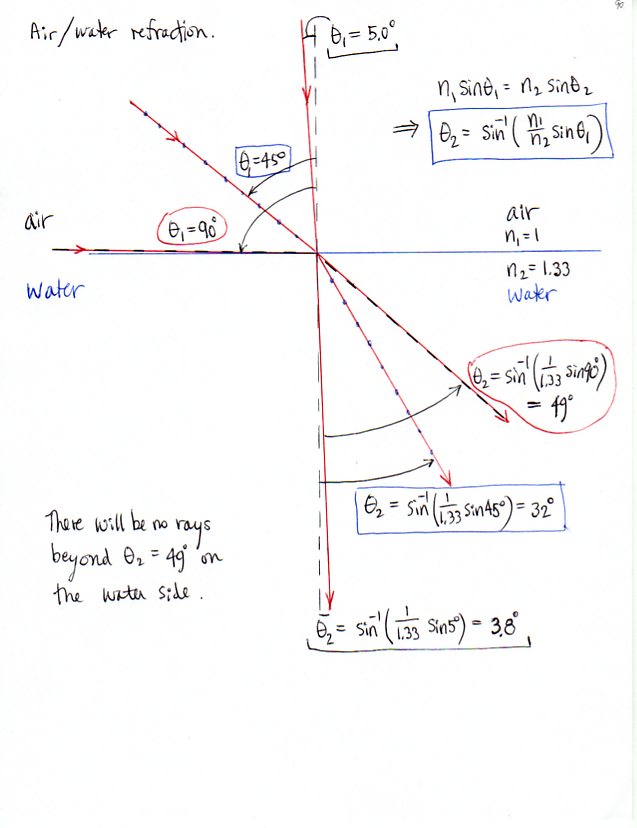 90
Air/water refraction.
θ₁ = 5.0°
n₁ sinθ₁ = n₂ sinθ₂
⇒ θ₂ = sin⁻¹(n₁/n₂ sinθ₁)
θ₁=45°
θ₁=90°
air
water
air
n₁=1
n₂=1.33
water
θ₂ = sin⁻¹(1/1.33 sin90°)
= 49°
θ₂ = sin⁻¹(1/1.33 sin45°) = 32°
There will be no rays
beyond θ₂ = 49° on
the water side.
θ₂ = sin⁻¹(1/1.33 sin5°) = 3.8°